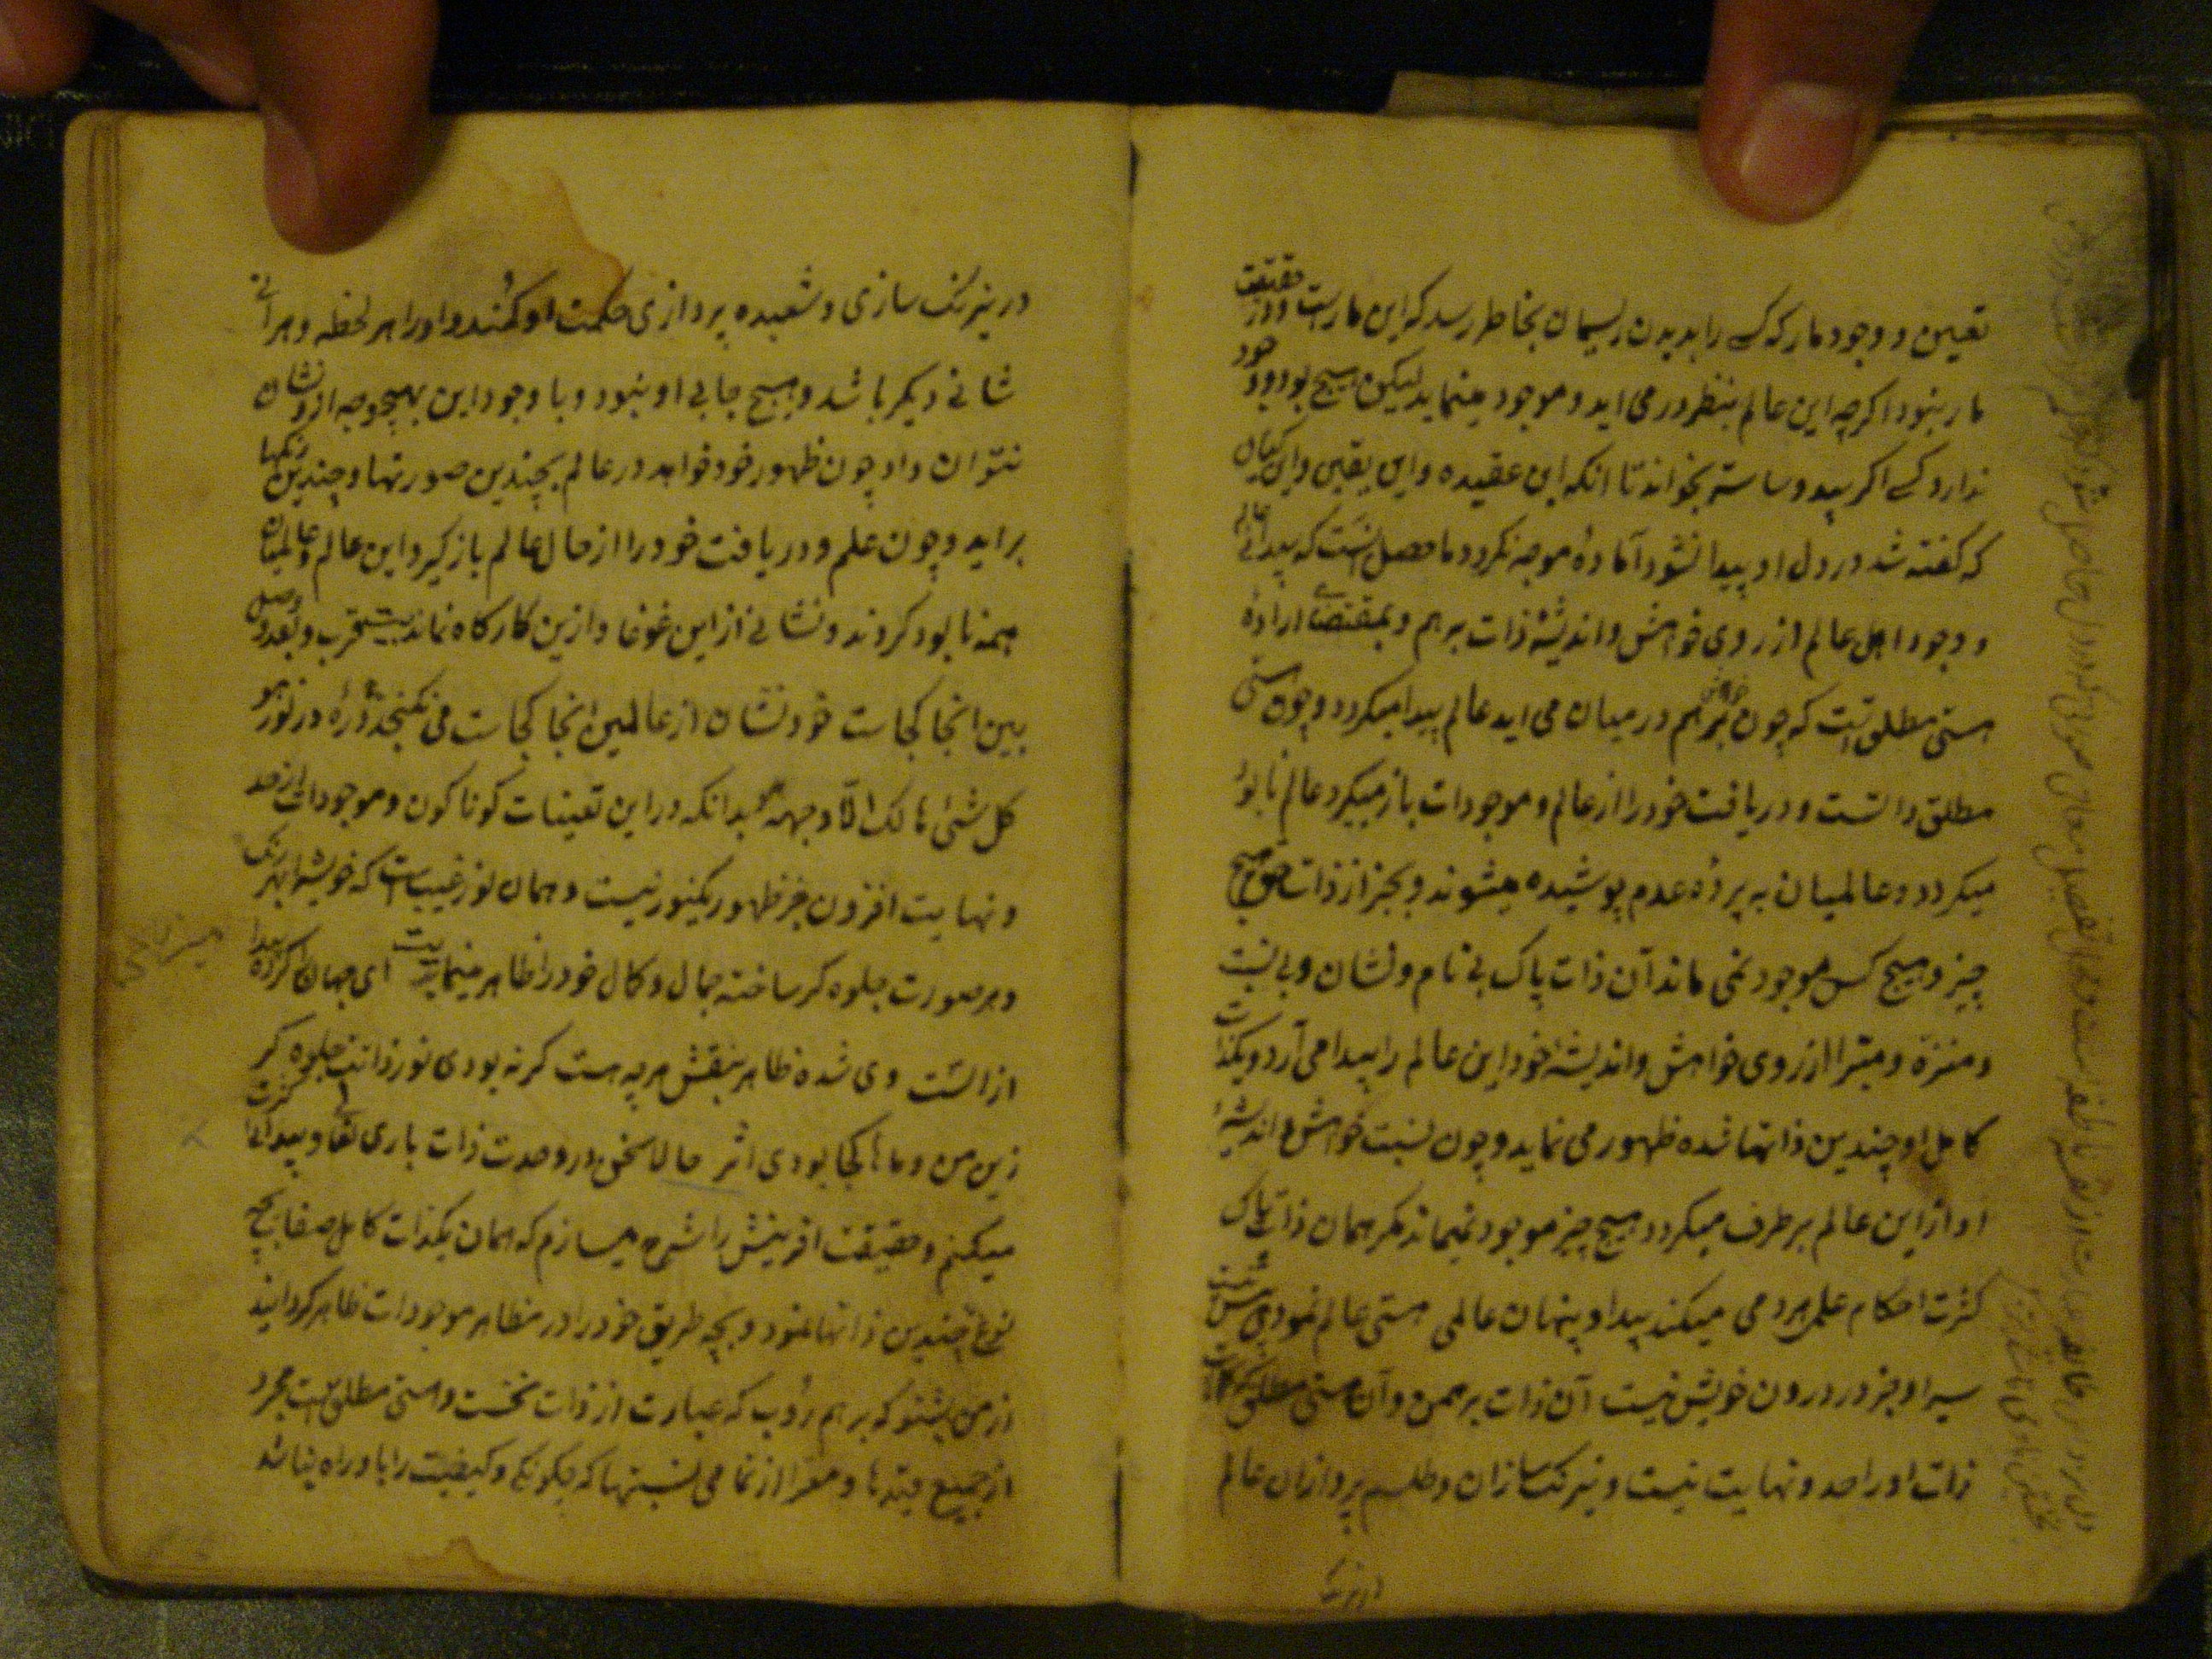 تعین و وجود مار که کسے را بدیدن ریسمان بخاطر رسد که این مارست و در حقیقت
مار بنود اگرچه این عالم بنظر در می اید و موجود مینماید لیکن هیچ بود وجود
ندارد کسے اگر بید و ساستر بخواند تا انکه این عقیده و این یقین و این کیان
که گفته شد در دل او پیدا نشود آماده موجه نکردد ما حصل انست که پیدائی عالم
و وجود اهل عالم از روی خواهش و اندیشهٔ ذات برهم و بمقتضاے ارادهٔ
هستی مطلق است که چون خواهش برهم در میان می اید عالم پیدا میکردد و چون هستی
مطلق دانست و دریافت خود را از عالم و موجودات باز میکیرد عالم نابود
میکردد و عالمیان به پردهٔ عدم پوشیده میشوند و بجز از ذات حق هیچ
چیز و هیچ کس موجود نمی ماند آن ذات پاک بی نام و نشان و بی نسبت
و منزه و مبترا از روی خواهش و اندیشهٔ خود این عالم را پیدا می آرد و یکذات
کامل او چندین ذاتها شده ظهور می نماید و چون نسبت خواهش و اندیشهٔ
او از این عالم برطرف میکردد هیچ چیز موجود نمیماند مکر همان ذات پاک
کثرت احکام علمی هر دمی میکند پیدا و پنهان عالمی هستی عالم نمودی بیش نیست
سیر او جز در درون خویش نیست آن ذات برهمن و آن هستی مطلق که
ذات او را حد و نهایت نیست و نیرنکسازان و طلسم پردازان عالم
در نیرنک
در نیرنک سازی و شعبده پردازی حکمت او کمند و او را هر لحظه و هر آنے
شانے دیکر باشد و هیچ جا بی او بنود و با وجود این بهیچوجه ازو نشان
نتوان داد چون ظهور خود خواهد در عالم بچندین صورتها و چندین رنکها
براید و چون علم و دریافت خود را از حال عالم باز کیرد این عالم و عالمیان
همه نابود کردند و نشانے از این غوغا و ازین کارکاه نماند بیت قرب و بعد و وصل
بین انجا کجاست خود نشان از عالمین انجا کجاست می نکنجد ذره در نور هو
کل شئ هالک الا وجهه بدانکه در این تعینات کوناکون و موجودات از حد
و نهایت افزون جز ظهور یکنور نیست و همان نور غیب است که خویش را بهر رنک
و هر صورت جلوه کر ساخته جمال و کمال خود را ظاهر مینماید بیت ای جهان را کرده پیدا
از الست وی شده ظاهر بنقش هرچه هست کر نه بودی نور ذاتت جلوه کر
زین من و ما ها کجا بودی اثر حالا سخن در وحدت ذات باری تعالی و پیدائی کثرت
میکنم و حقیقت افرینش را شرح میسازم که همان یکذات کامل صفا بچه
نوع چندین ذاتها نمود و بچه طریق خود را در مظاهر موجودات ظاهر کردانید
از من بشنو که برهم روپ که عبارت از ذات نخست و هستی مطلق است مجرد
از جمیع قیدها و معرا از تمامی نسبتها که چکونکی و کیفیت را با و راه نباشد